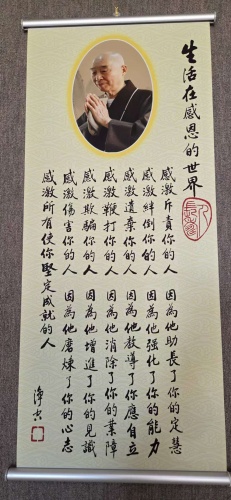 生活在感恩的世界
感激斥責你的人 因為他助長了你的定慧
感激絆倒你的人 因為他強化了你的能力
感激遺棄你的人 因為他教導了你應自立
感激鞭打你的人 因為他消除了你的業障
感激欺騙你的人 因為他增進了你的見識
感激傷害你的人 因為他磨煉了你的心志
感激所有使你堅定成就的人
淨空